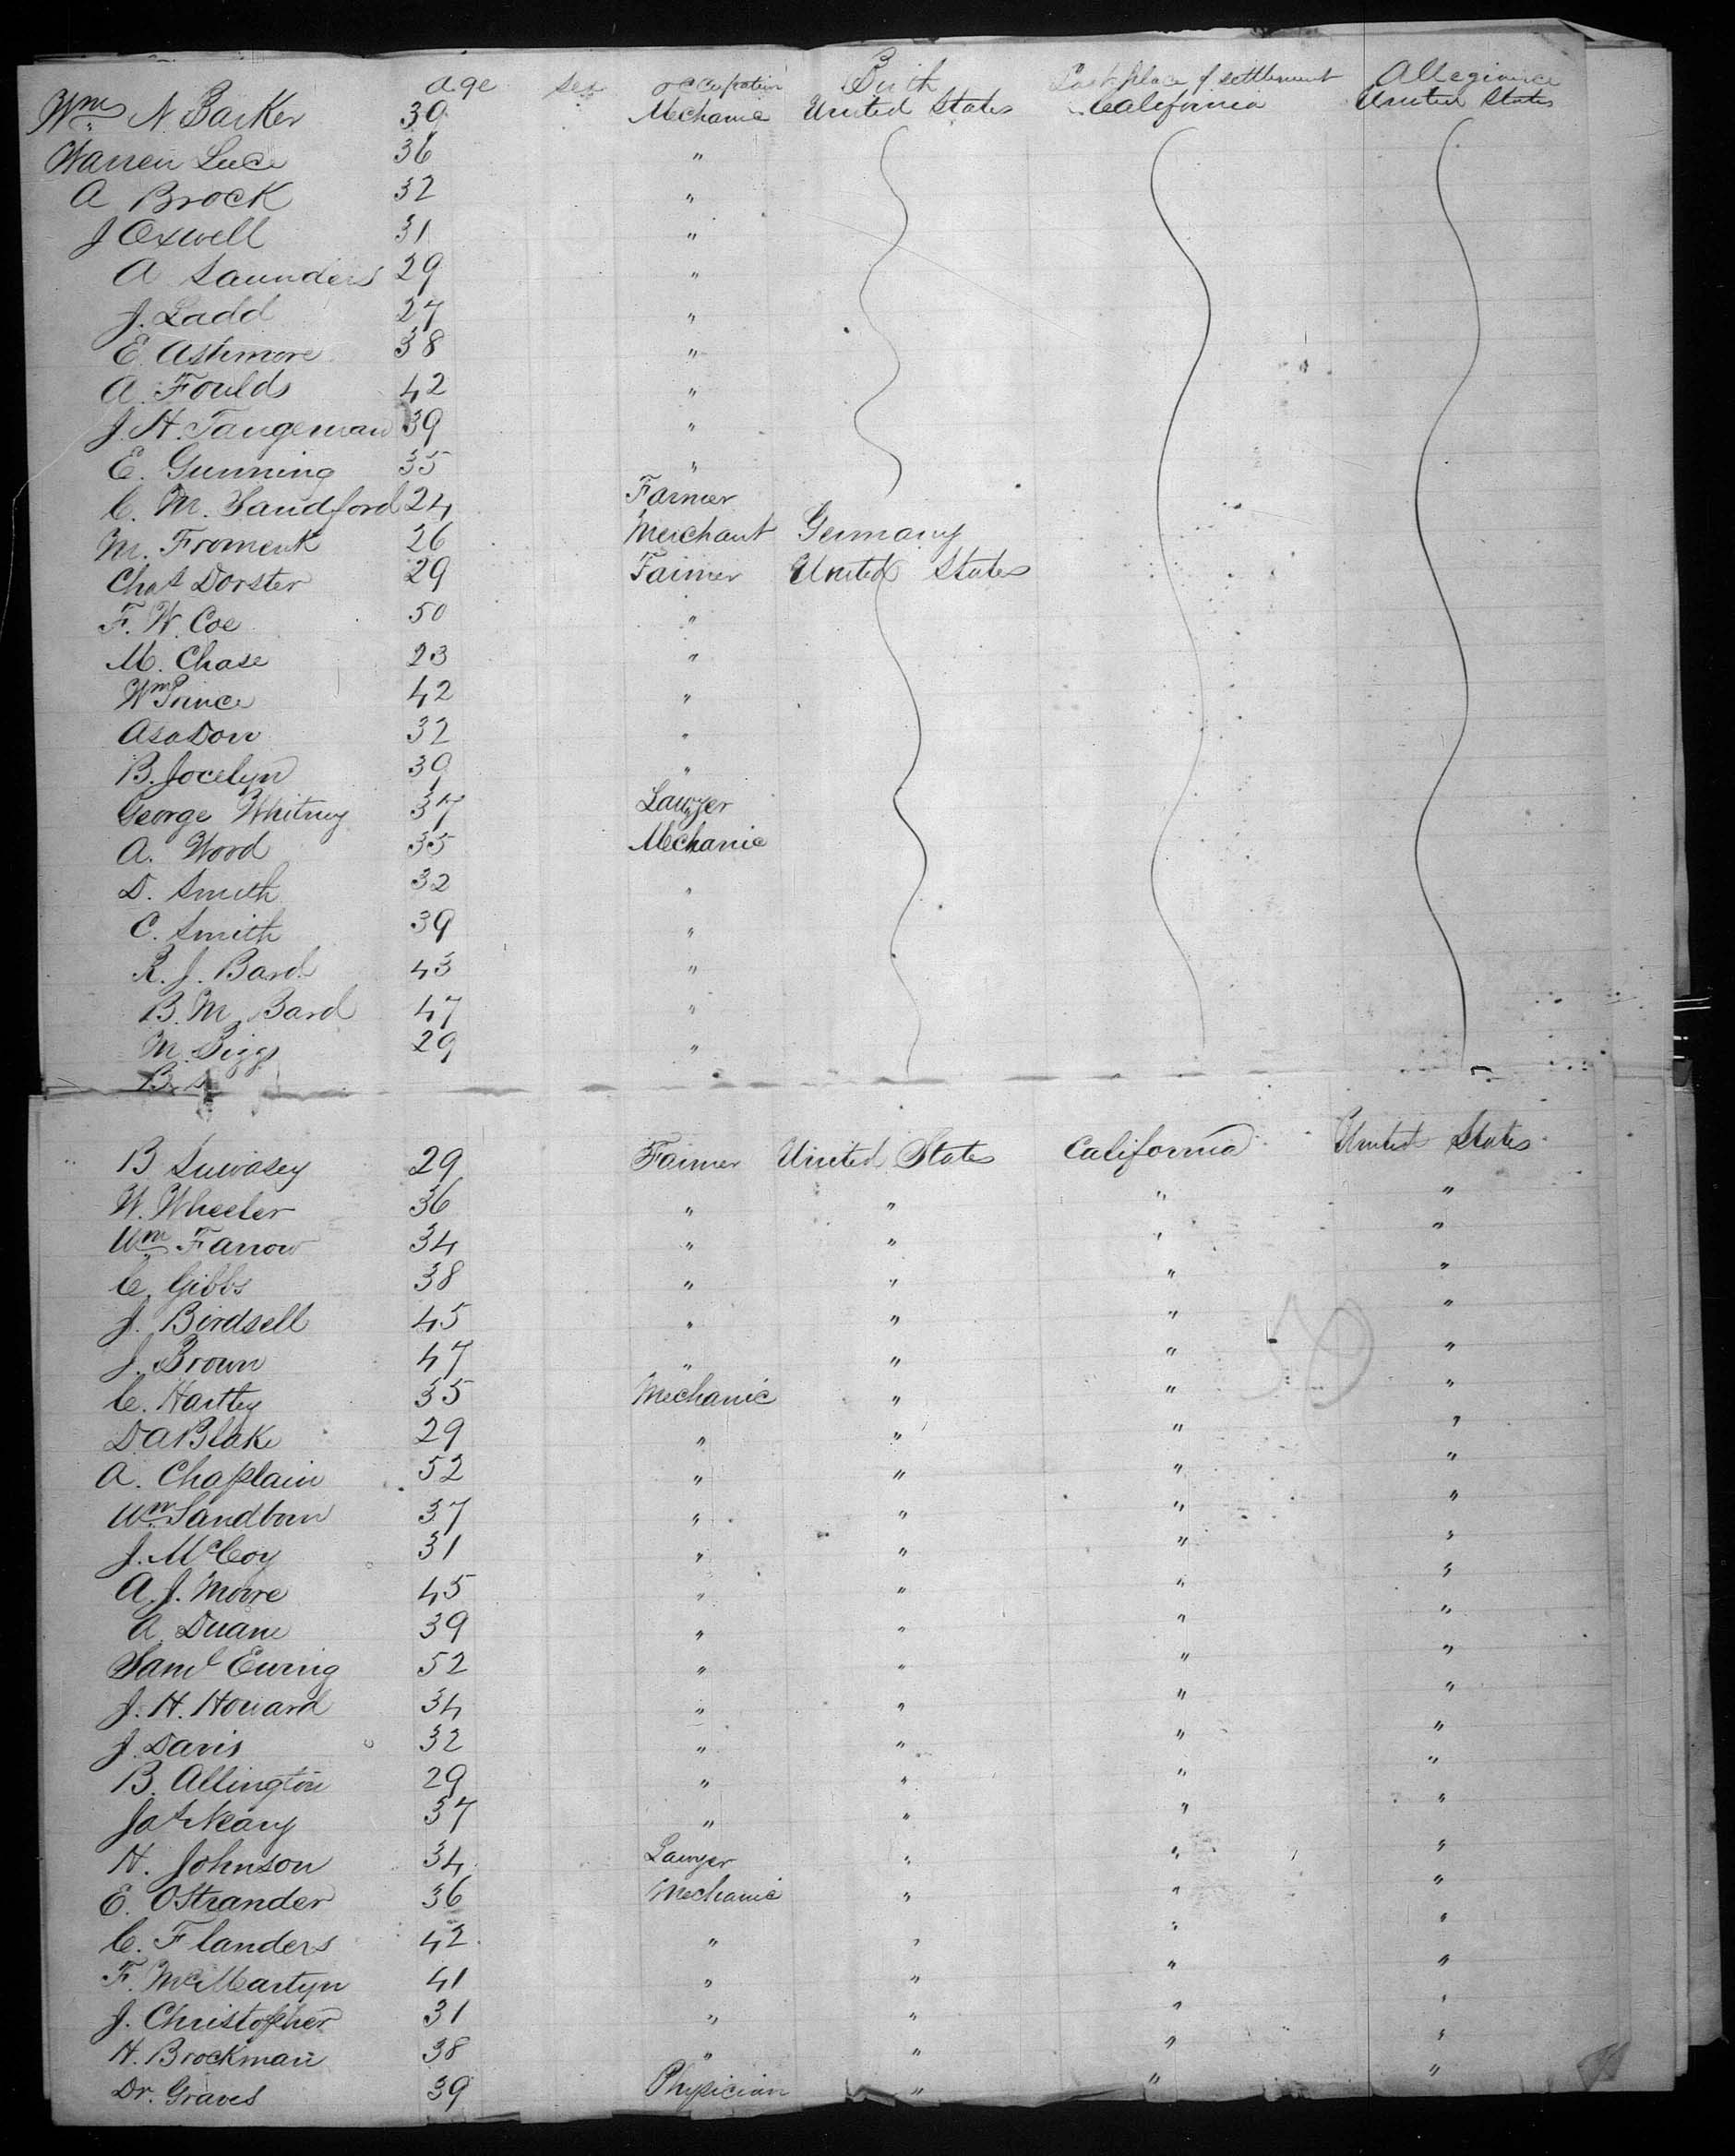 age sex occupation Birth Last place of settlement Allegiance
Wm N. Barker 30 Mechanic United States California United States
Warren Luce 36 "
A Brock 32 "
J Oxwell 31 "
A Saunders 29 "
J. Ladd 27 "
E. Ashmore 38 "
A. Foulds 42 "
J. H. Tangeman 39 "
E. Gunning 35 "
C. M. Sandford 24 Farmer
M. Froment 26 Merchant Germany
Chas Dorster 29 Farmer United States
F. W. Coe 50 "
M. Chase 23 "
Wm Prince 42 "
Asa Dow 32 "
B. Jocelyn 30 "
George Whitney 37 Lawyer
A. Wood 35 Mechanic
D. Smith 32 "
C. Smith 39 "
R. J. Bard 43 "
B. M. Bard 47 "
M. Biggs 29 "
B Suwasey 29 Farmer United States California United States
W. Wheeler 36 " " " "
Wm Farrow 34 " " " "
C. Gibbs 38 " " " "
J. Birdsell 45 " " " "
J. Brown 47 " " " "
C. Hartley 35 Mechanic " " "
D A Blake 29 " " " "
A. Chaplain 52 " " " "
Wm Sandborn 37 " " " "
J. McCoy 31 " " " "
A. J. Moore 45 " " " "
A. Duane 39 " " " "
Saml Ewing 52 " " " "
J. H. Howard 34 " " " "
J. Davis 32 " " " "
B. Allington 29 " " " "
Jas Neary 37 " " " "
H. Johnson 34 Lawyer " " "
E. Ostrander 36 Mechanic " " "
C. Flanders 42 " " " "
F. McMartyn 41 " " " "
J. Christopher 31 " " " "
H. Brockman 38 " " " "
Dr. Graves 39 Physician " " "